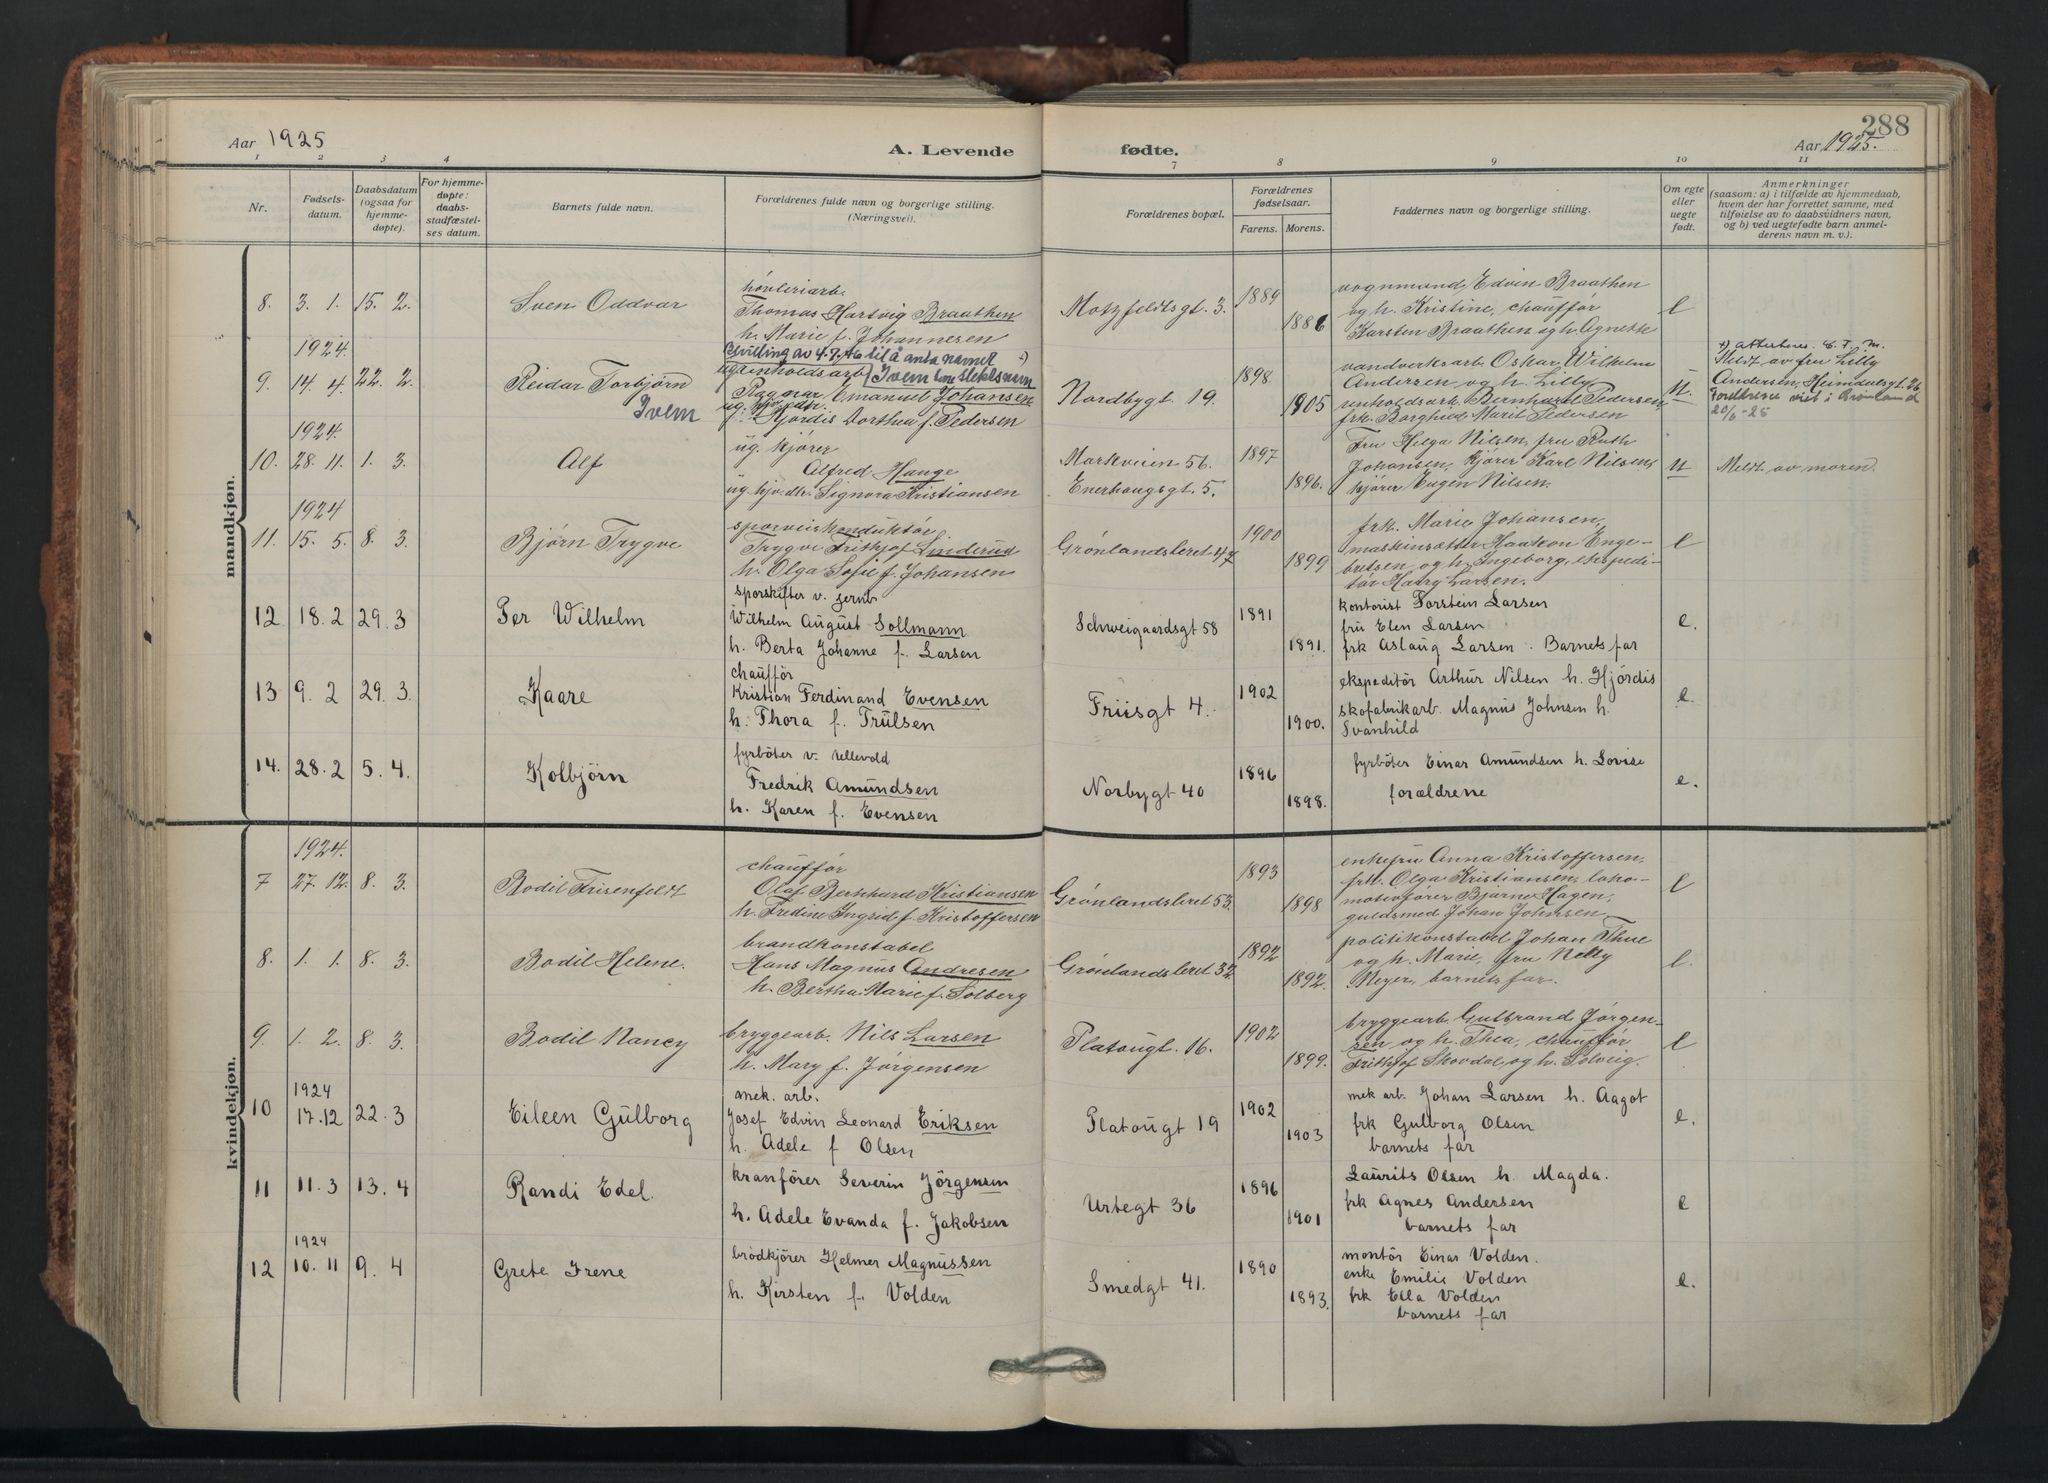 288
Aar 1925
A. Levende fødte.
Aar 1925.
1 2 3 4 7 8 9 10 11
Nr.
Fødsels-
datum.
Daabsdatum
(ogsaa for
hjemme-
døpte).
For hjemme-
døpte:
daabs-
stadfæstel-
ses datum.
Barnets fulde navn.
Forældrenes fulde navn og borgerlige stilling.
(Næringsvei).
Forældrenes bopæl.
Forældrenes
fødselsaar.
Farens. Morens.
Faddernes navn og borgerlige stilling.
Om egte
eller
uegte
født.
Anmerkninger
(saasom: a) i tilfælde av hjemmedaab,
hvem der har forrettet samme, med
tilføielse av to daabsvidners navn,
og b) ved uegtefødte barn anmel-
derens navn m. v.).
mandkjøn.
8. 3. 1. 15. 2. Sven Oddvar
høvleriarb.
Thomas Hartvig Braathen
h. Marie f. Johannesen
Motzfeldtsgt. 3. 1889 1886
vognmand Edvin Braathen
og h. Kristine, chauffør
Karsten Braathen og h. Agnete
e
1924.
9. 14. 4. 22. 2. Reidar Torbjørn
Ivem
Bevilling av 4.7.46 til å anta navnet
Ivem som slektsnavn
ug. renholdsarb.
Ragnar Emanuel Johansen
ug. Hjørdis Dorthea f. Pedersen
Nordbygt. 19. 1898. 1905
vandverksarb. Oskar Wilhelm
Andersen og h. Lilly
renholdsark. Bernhard Pedersen,
frk. Borghild Marie Pedersen
U.
Meldt av fru Lilly
Andersen, Heimdalsgt. 26
Foreldrene viet i Grønland
20/6-25
1924.
10. 28. 11. 1. 3. Alf
ug. kjører
Alfred Hange
ug. hjv. dh. Signora Kristiansen
Markveien 56.
Enerhaugsgt. 5. 1897 1896.
Fru Helga Nilsen, fru Ruth
Johansen, kjører Karl Nilsen,
kjører Eugen Nilsen.
U Meldt av moren.
1924
11. 15. 5. 8. 3. Bjørn Trygve
sporveiskonduktør
Trygve Frithjof Linderud
h. Olga Sofie f. Johansen
Grønlandsleret 47 1900 1899
frk. Marie Johansen,
maskinsætter Haakon Enge-
bretsen og h. Ingeborg, ekspedi-
tør Harry Larsen.
e
12. 18. 2 29. 3 Per Wilhelm
sporskifter v. jernb.
Wilhelm August Sollmann
h. Berta Johanne f. Larsen
Schweigaardsgt 58 1891 1891.
kontorist Torstein Larsen
fru Elen Larsen
frk Aslaug Larsen. Barnets far
e.
13 9. 2 29. 3. Kaare
chauffør
Kristian Ferdinand Evensen
h. Thora f. Trulsen
Friisgt 4. 1902 1900.
ekspeditør Arthur Nilsen h. Hjördis
skofabrikarb. Magnus Johnsen h.
Svanhild
e.
14. 28. 2 5. 4. Kolbjörn
fyrböter v. Ullevold
Fredrik Amundsen
h. Karen f. Evensen
Norbygt 40 1896 1898.
fyrböter Einar Amundsen h. Lovise
forældrene
e.
kvindekjøn.
1924.
7 27. 12. 8. 3. Bodil Frisenfeldt
chauffør
Olaf Bernhard Kristiansen
h. Fredine Ingrid f. Kristoffersen
Grønlandsleret 53. 1893 1898
enkefru Anna Kristoffersen,
frk. Olga Kristiansen, loko-
motivfører Bjarne Hagen,
guldsmed Johan Johnsen
e
8. 1. 1. 8. 3. Bodil Helene.
brandkonstabel
Hans Magnus Andresen
h. Bertha Marie f. Solberg
Grønlandsleret 32. 1892 1892.
politikonstabel Johan Thue
og h. Marie, fru Nelly
Meyer, barnets far.
e.
9. 1. 2. 8. 3. Bodil Nancy
bryggearb. Nils Larsen
h. Mary f. Jørgensen
Platougt. 16. 1902 1899.
bryggearb. Gulbrand Jørgen-
sen og h. Thea, chauffør
Frithjof Skovdal, og h. Solveig.
e
1924
10 17. 12 22. 3 Eileen Gulborg
mek. arb.
Josef Edvin Leonard Eriksen
h. Adele f Olsen
Platougt 19 1902 1903
mek arb. Johan Larsen h. Aagot
frk Gulborg Olsen
barnets far
e.
11 11. 3 13. 4 Randi Edel.
kranförer Severin Jörgensen
h. Adele Evanda f. Jakobsen
Urtegt 36 1896 1901
Laurits Olsen h. Magda.
frk Agnes Andersen
barnets far
e
1924
12 10. 11 9. 4 Grete Irene
brödkjörer Helmer Magnussen
h. Kirsten f. Volden
Smedgt 41. 1890 1893.
montör Einar Volden.
enke Emilie Volden
frk Ella Volden
barnets far
e.